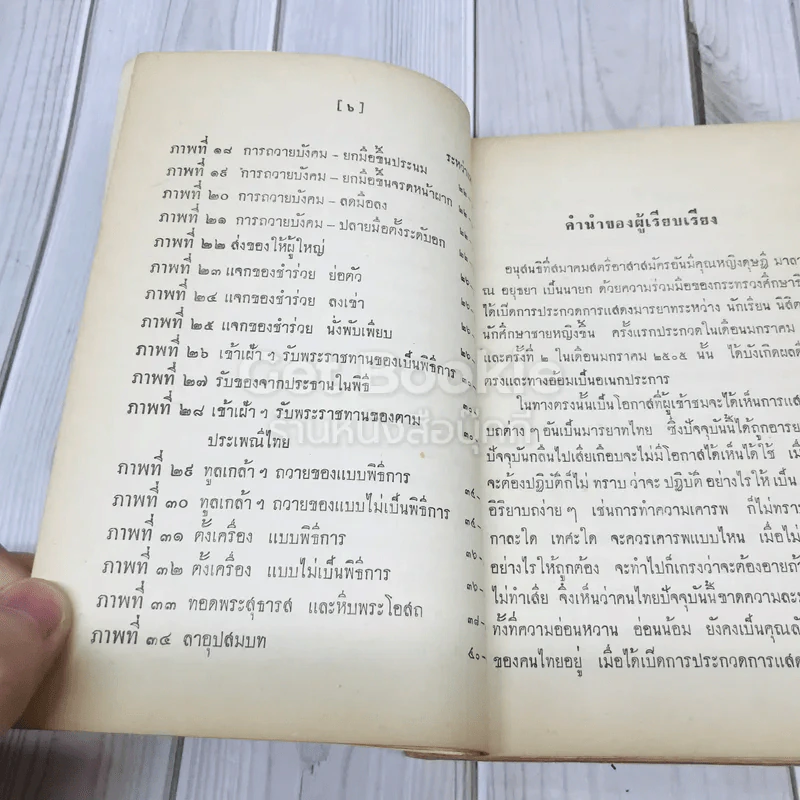 [ ๖ ]
ภาพที่ ๑๘ การถวายบังคม – ยกมือขึ้นประนม
ภาพที่ ๑๙ การถวายบังคม – ยกมือขึ้นจรดหน้าผาก
ภาพที่ ๒๐ การถวายบังคม – ลดมือลง
ภาพที่ ๒๑ การถวายบังคม – ปลายมือตั้งระดับอก
ภาพที่ ๒๒ ส่งของให้ผู้ใหญ่
ภาพที่ ๒๓ แจกของชำร่วย ย่อตัว
ภาพที่ ๒๔ แจกของชำร่วย ลงเข่า
ภาพที่ ๒๕ แจกของชำร่วย นั่งพับเพียบ
ภาพที่ ๒๖ เข้าเฝ้า ๆ รับพระราชทานของเป็นพิธีการ
ภาพที่ ๒๗ รับของจากประธานในพิธี
ภาพที่ ๒๘ เข้าเฝ้า ๆ รับพระราชทานของตาม
ประเพณีไทย
ภาพที่ ๒๙ ทูลเกล้า ๆ ถวายของแบบพิธีการ
ภาพที่ ๓๐ ทูลเกล้า ๆ ถวายของแบบไม่เป็นพิธีการ
ภาพที่ ๓๑ ตั้งเครื่อง แบบพิธีการ
ภาพที่ ๓๒ ตั้งเครื่อง แบบไม่เป็นพิธีการ
ภาพที่ ๓๓ ทอดพระสุธารส และหีบพระโอสถ
ภาพที่ ๓๔ ลาอุปสมบท
๓๘-
๔๐-
คำนำของผู้เรียบเรียง
อนุสนธิที่สมาคมสตรีอาสาสมัครอันมีคุณหญิงดุษฎี มาลา
ณ อยุธยา เป็นนายก ด้วยความร่วมมือของกระทรวงศึกษาธิ
ได้เปิดการประกวดการแสดงมารยาทระหว่าง นักเรียน นิสิต
นักศึกษาชายหญิงขึ้น ครั้งแรกประกวดในเดือนมกราคม
และครั้งที่ ๒ ในเดือนมกราคม ๒๕๐๕ นั้น ได้บังเกิดผลดี
ตรงและทางอ้อมเป็นอเนกประการ
ในทางตรงนั้นเป็นโอกาสที่ผู้เข้าชมจะได้เห็นการแส
บถต่าง ๆ อันเป็นมารยาทไทย ซึ่งปัจจุบันนี้ได้ถูกอารย
ปัจจุบันกลืนไปเสียเกือบจะไม่มีโอกาสได้เห็นได้ใช้ เมื่
จะต้องปฏิบัติก็ไม่ ทราบ ว่าจะ ปฏิบัติ อย่างไรให้ เป็น
อิริยาบถง่าย ๆ เช่นการทำความเคารพ ก็ไม่ทรา
กาละใด เทศะใด จะควรเคารพแบบไหน เมื่อไม่
อย่างไรให้ถูกต้อง จะทำไปก็เกรงว่าจะต้องอายถ้า
ไม่ทำเสีย จึงเห็นว่าคนไทยปัจจุบันนี้ขาดความละม
ทั้งที่ความอ่อนหวาน อ่อนน้อม ยังคงเป็นคุณลั
ของคนไทยอยู่ เมื่อได้เปิดการประกวดการแสด
Get Bookie
ร้านหนังสือ